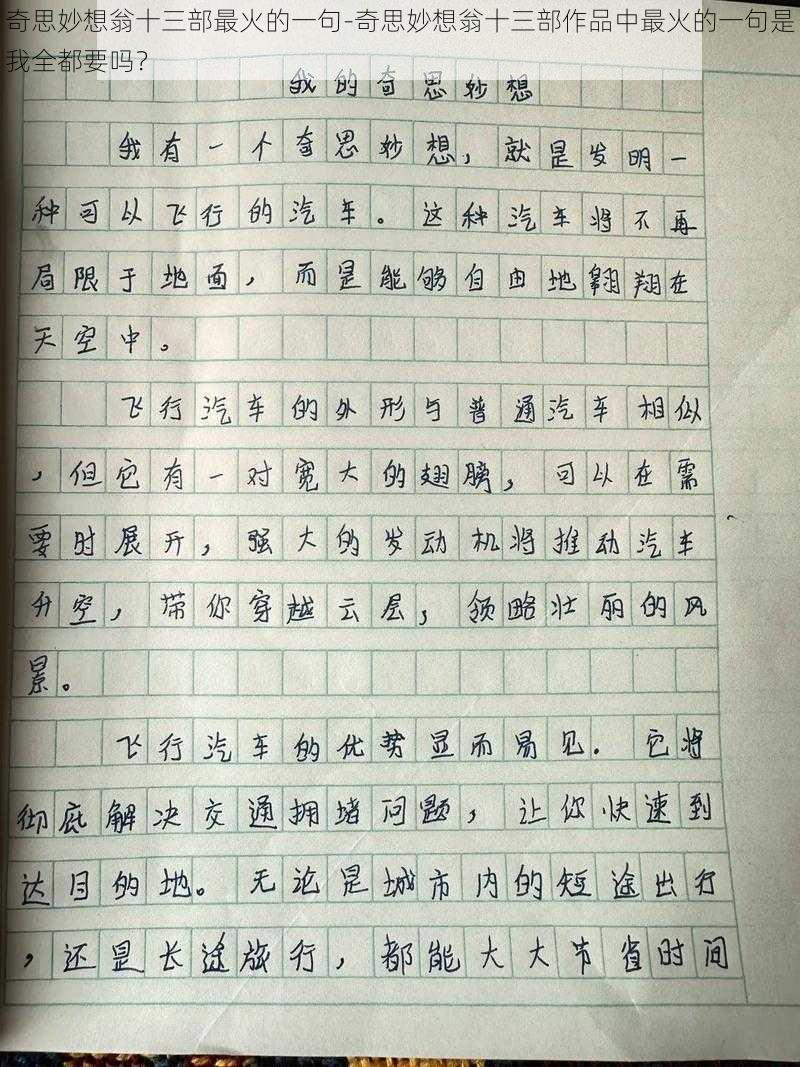 奇思妙想翁十三部最火的一句-奇思妙想翁十三部作品中最火的一句是
我全都要吗？
我的奇思妙想
我有一个奇思妙想，就是发明一
种可以飞行的汽车。这种汽车将不再
局限于地面，而是能够自由地翱翔在
天空中。
飞行汽车的外形与普通汽车相似
，但它有一对宽大的翅膀，可以在需
要时展开，强大的发动机将推动汽车
升空，带你穿越云层，领略壮丽的风
景。
飞行汽车的优势显而易见．它将
彻底解决交通拥堵问题，让你快速到
达目的地。无论是城市内的短途出行
，还是长途旅行，都能大大节省时间